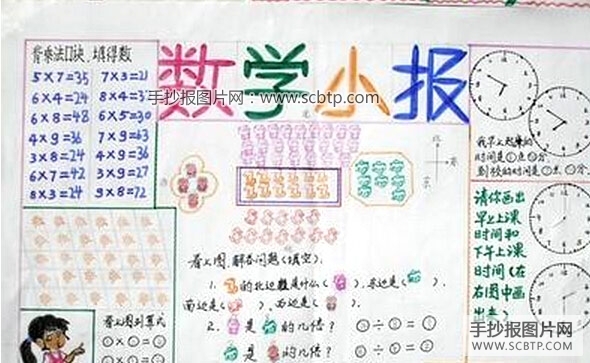 数学小报
手抄报图片网：www.scbtp.com
背乘法口诀、填得数
5×7=35 7×3=21
6×4=24 8×4=3
6×8=48 6×5=30
4×9=36 7×9=63
3×8=24 4×9=36
6×7=42 3×9=27
8×3=24 9×8=72
我早上起床的
时间是
到校的时间是
请你画出
早上上课
时间和
下午上课
时间（在
右图中画
出来）
看上图，解答问题（填空）。
1. 的北边是什么（ ），东边是（ ），
南边是（ ），西边是（ ）。
2. 是 的几倍？
是 的几倍？
看上图列算式
手抄报图片网
WWW.SCBTP.COM